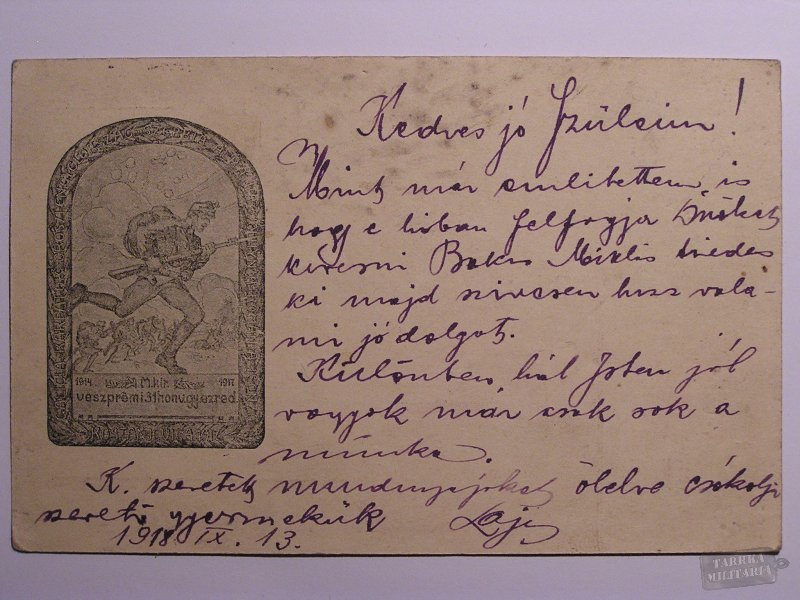 Kedves jó Szüleim!
Mint már emlitettem is
hogy e hóban felfogja Önöket
keresni Miklós
ki majd szivesen hisz vala-
mi jó dolgot.
Különben hál Isten jól
vagyok már csak sok a
munka.
K. szeretet ölelve csókolja
szerető gyermekük Laji
1918 IX. 13.
1914 1917
M. kir.
veszprémi 31 honv. gy. ezred
TARRKA
MILITARIA